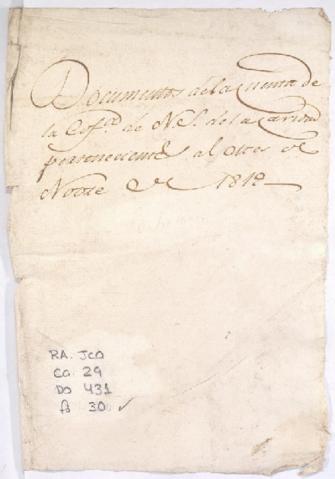 Documentos de la Cuenta de
la Cofª. de N. S. de la Caridad
perteneciente al mes de
Novre de 1812
RA. JCO
CA. 29
DO 431
30